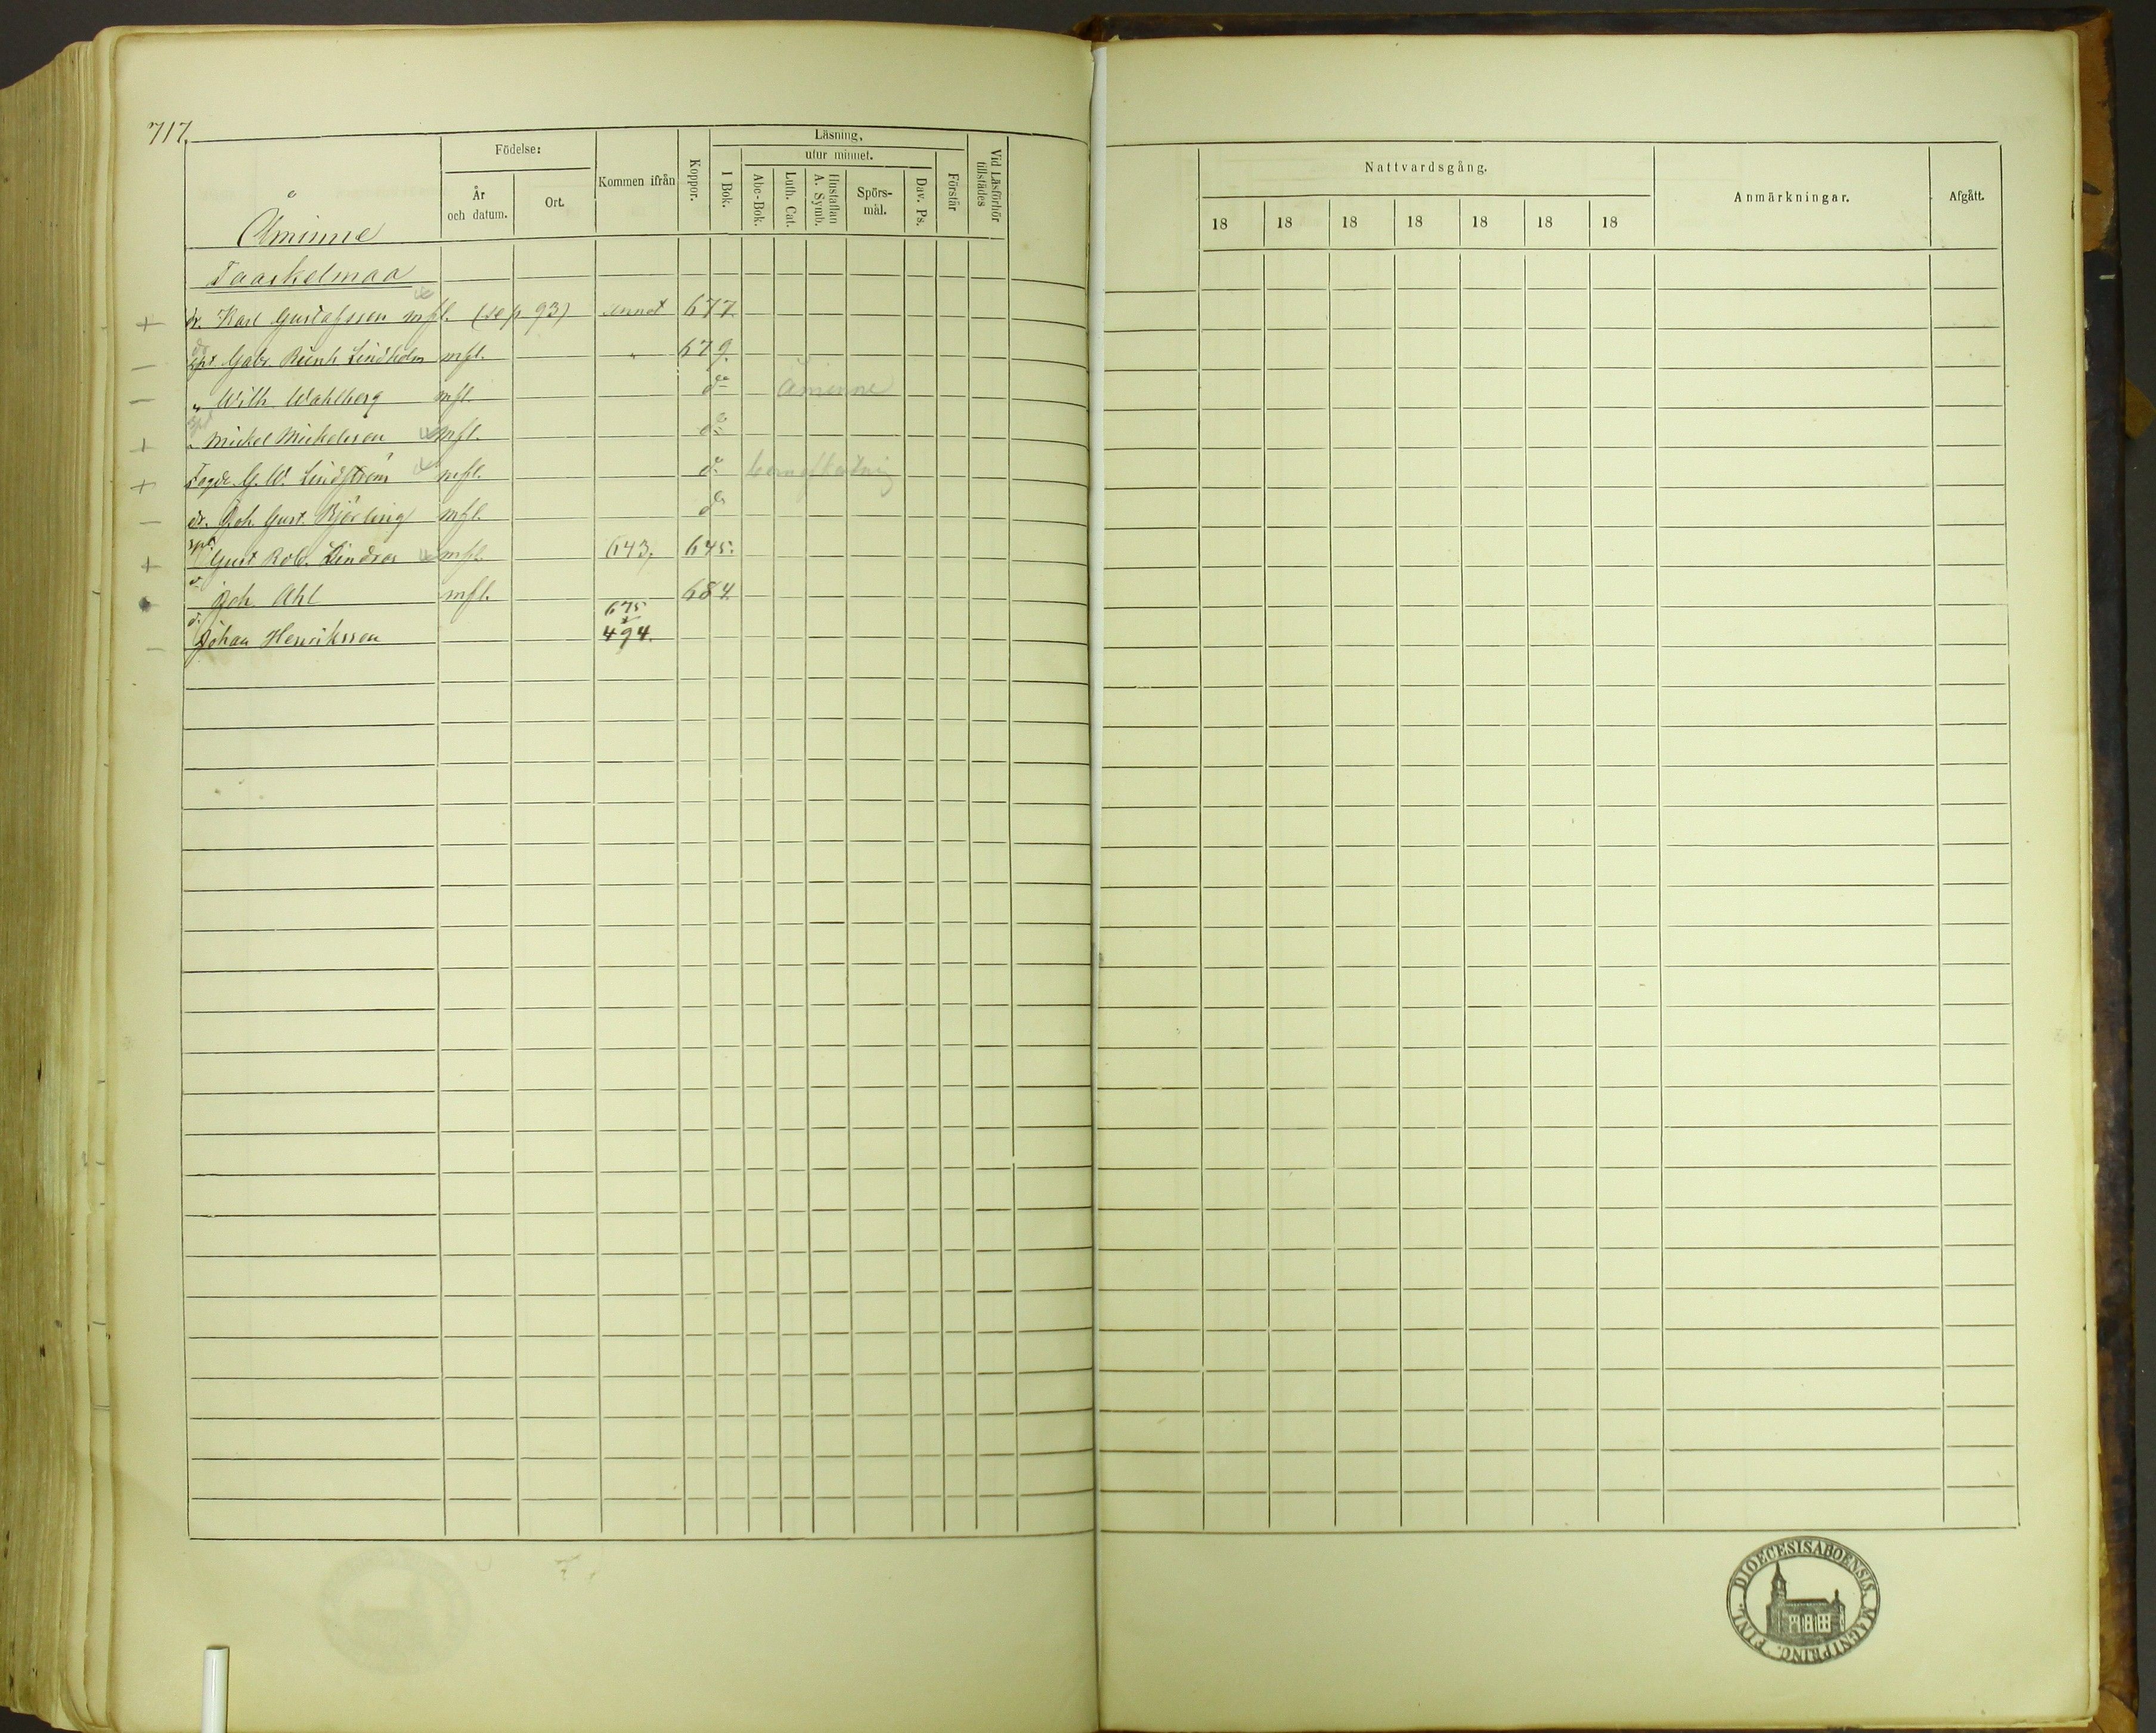 717.
Åminne
Födelse:
År
och datum.
Ort.
Kommen ifrån
Koppor.
Läsning.
I Bok.
utur minnet.
Abc-Bok.
Luth. Cat.
Hustaflan
A. Symb.
Spörs-
mål.
Dav. Ps.
Förstår
Vid Läsförhör
tillstädes
Nattvardsgång.
18 18 18 18 18 18 18
Anmärkningar.
Afgått.
+ dr. Karl Gustafsson mfl. (se p 93) 677.
— Gabr. Reinh Lindholm mfl. " 679.
— " Wilh. Wahlberg mfl. do Åminne
+ Mickel Mickelsson mfl. do
+ G. W. Lindström mfl. do
— dr. Joh. Gust. Björling mfl. do
+ Gust Rob. Lindroos mfl. 643, 645.
Joh. Ahl mfl. 684.
— Johan Henriksson 675 494.
DIOECESIS ABOENSIS MAGNI PRINC. FINL.